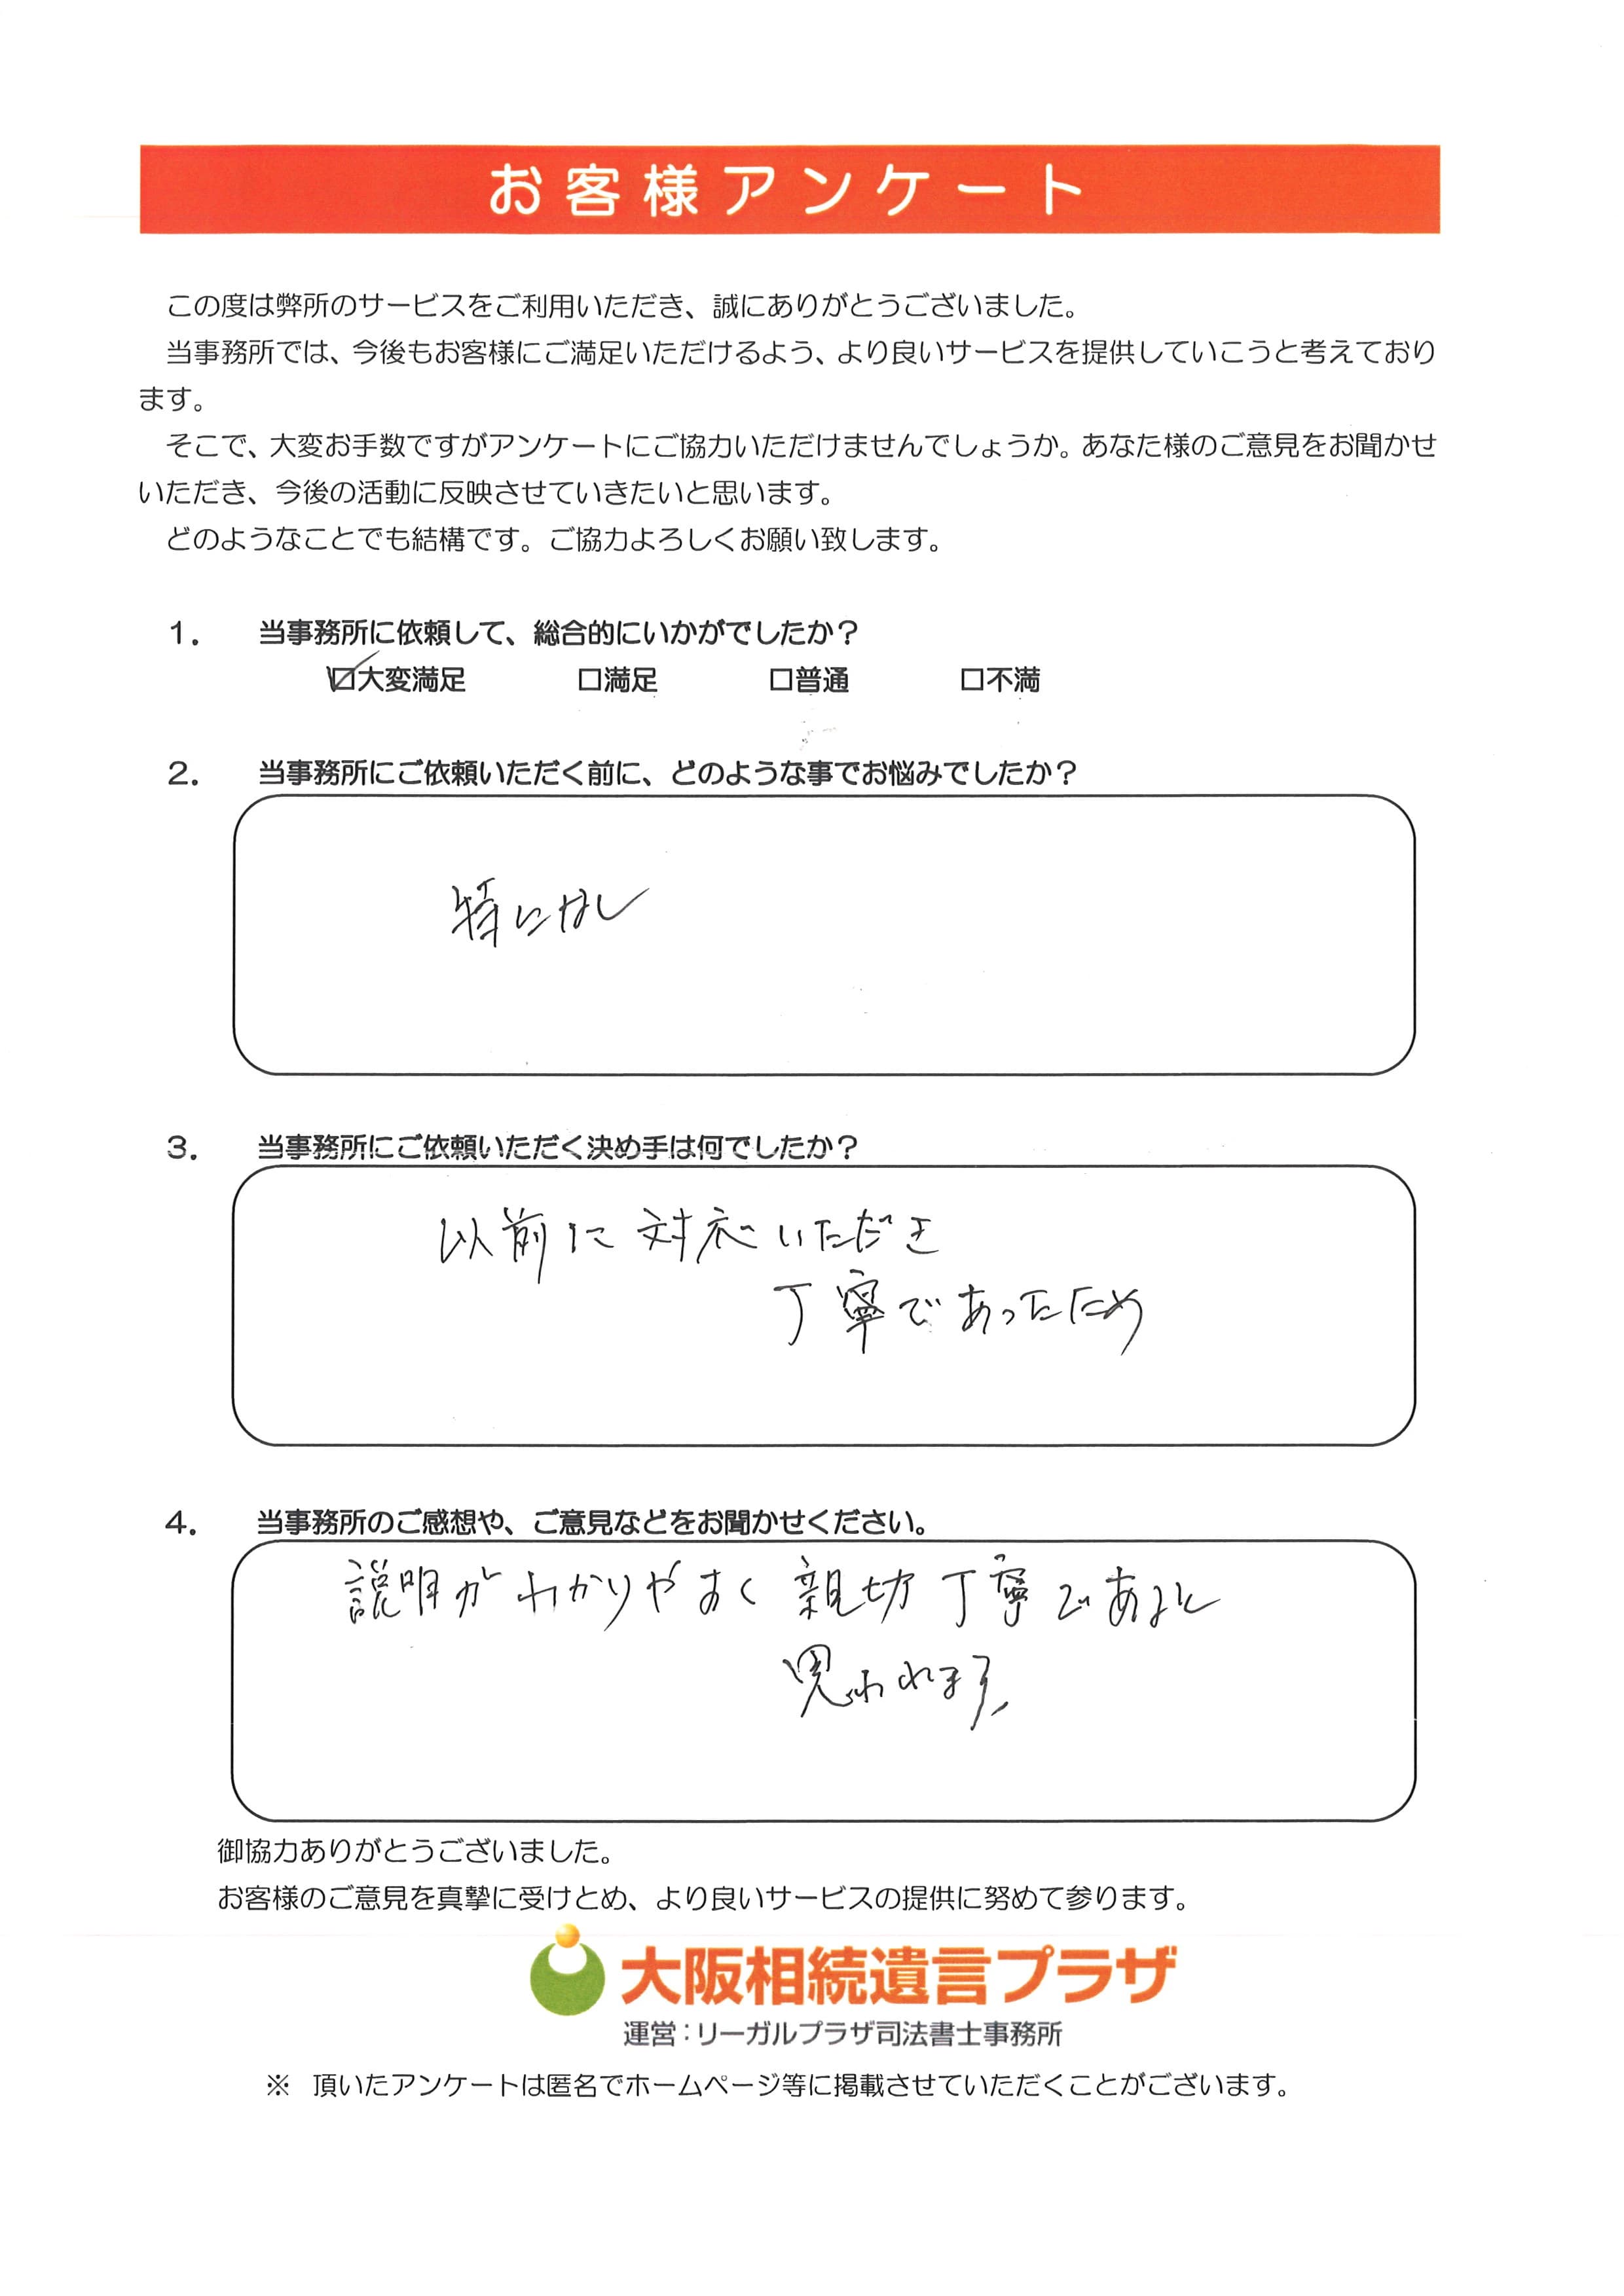 お客様アンケート
この度は弊所のサービスをご利用いただき、誠にありがとうございました。
当事務所では、今後もお客様にご満足いただけるよう、より良いサービスを提供していこうと考えており
ます。
そこで、大変お手数ですがアンケートにご協力いただけませんでしょうか。あなた様のご意見をお聞かせ
いただき、今後の活動に反映させていきたいと思います。
どのようなことでも結構です。ご協力よろしくお願い致します。
1. 当事務所に依頼して、総合的にいかがでしたか？
☑大変満足 □満足 □普通 □不満
2. 当事務所にご依頼いただく前に、どのような事でお悩みでしたか？
特になし
3. 当事務所にご依頼いただく決め手は何でしたか？
以前に対応いただき
丁寧であったため
4. 当事務所のご感想や、ご意見などをお聞かせください。
説明がわかりやすく親切丁寧であると
思われます。
御協力ありがとうございました。
お客様のご意見を真摯に受けとめ、より良いサービスの提供に努めて参ります。
大阪相続遺言プラザ
運営：リーガルプラザ司法書士事務所
※ 頂いたアンケートは匿名でホームページ等に掲載させていただくことがございます。